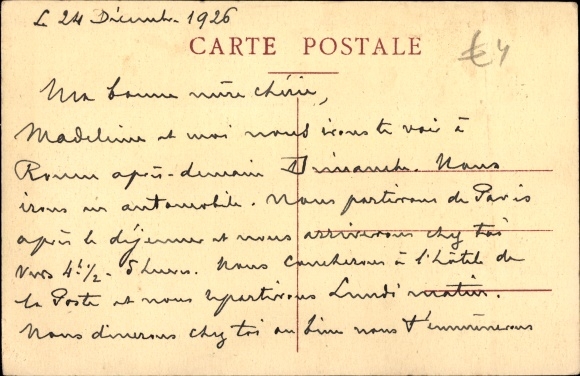 Le 24 Décembre 1926
CARTE POSTALE
€4
Ma bonne mère chérie,
Madeleine et moi nous irons te voir à
Rouen après-demain Dimanche. Nous
irons en automobile. Nous partirons de Paris
après le déjeuner et nous arriverons chez toi
vers 4h 1/2 - 5 heures. Nous coucherons à l'hôtel de
la Poste et nous repartirons Lundi matin.
Nous dînerons chez toi ou bien nous t'emmènerons